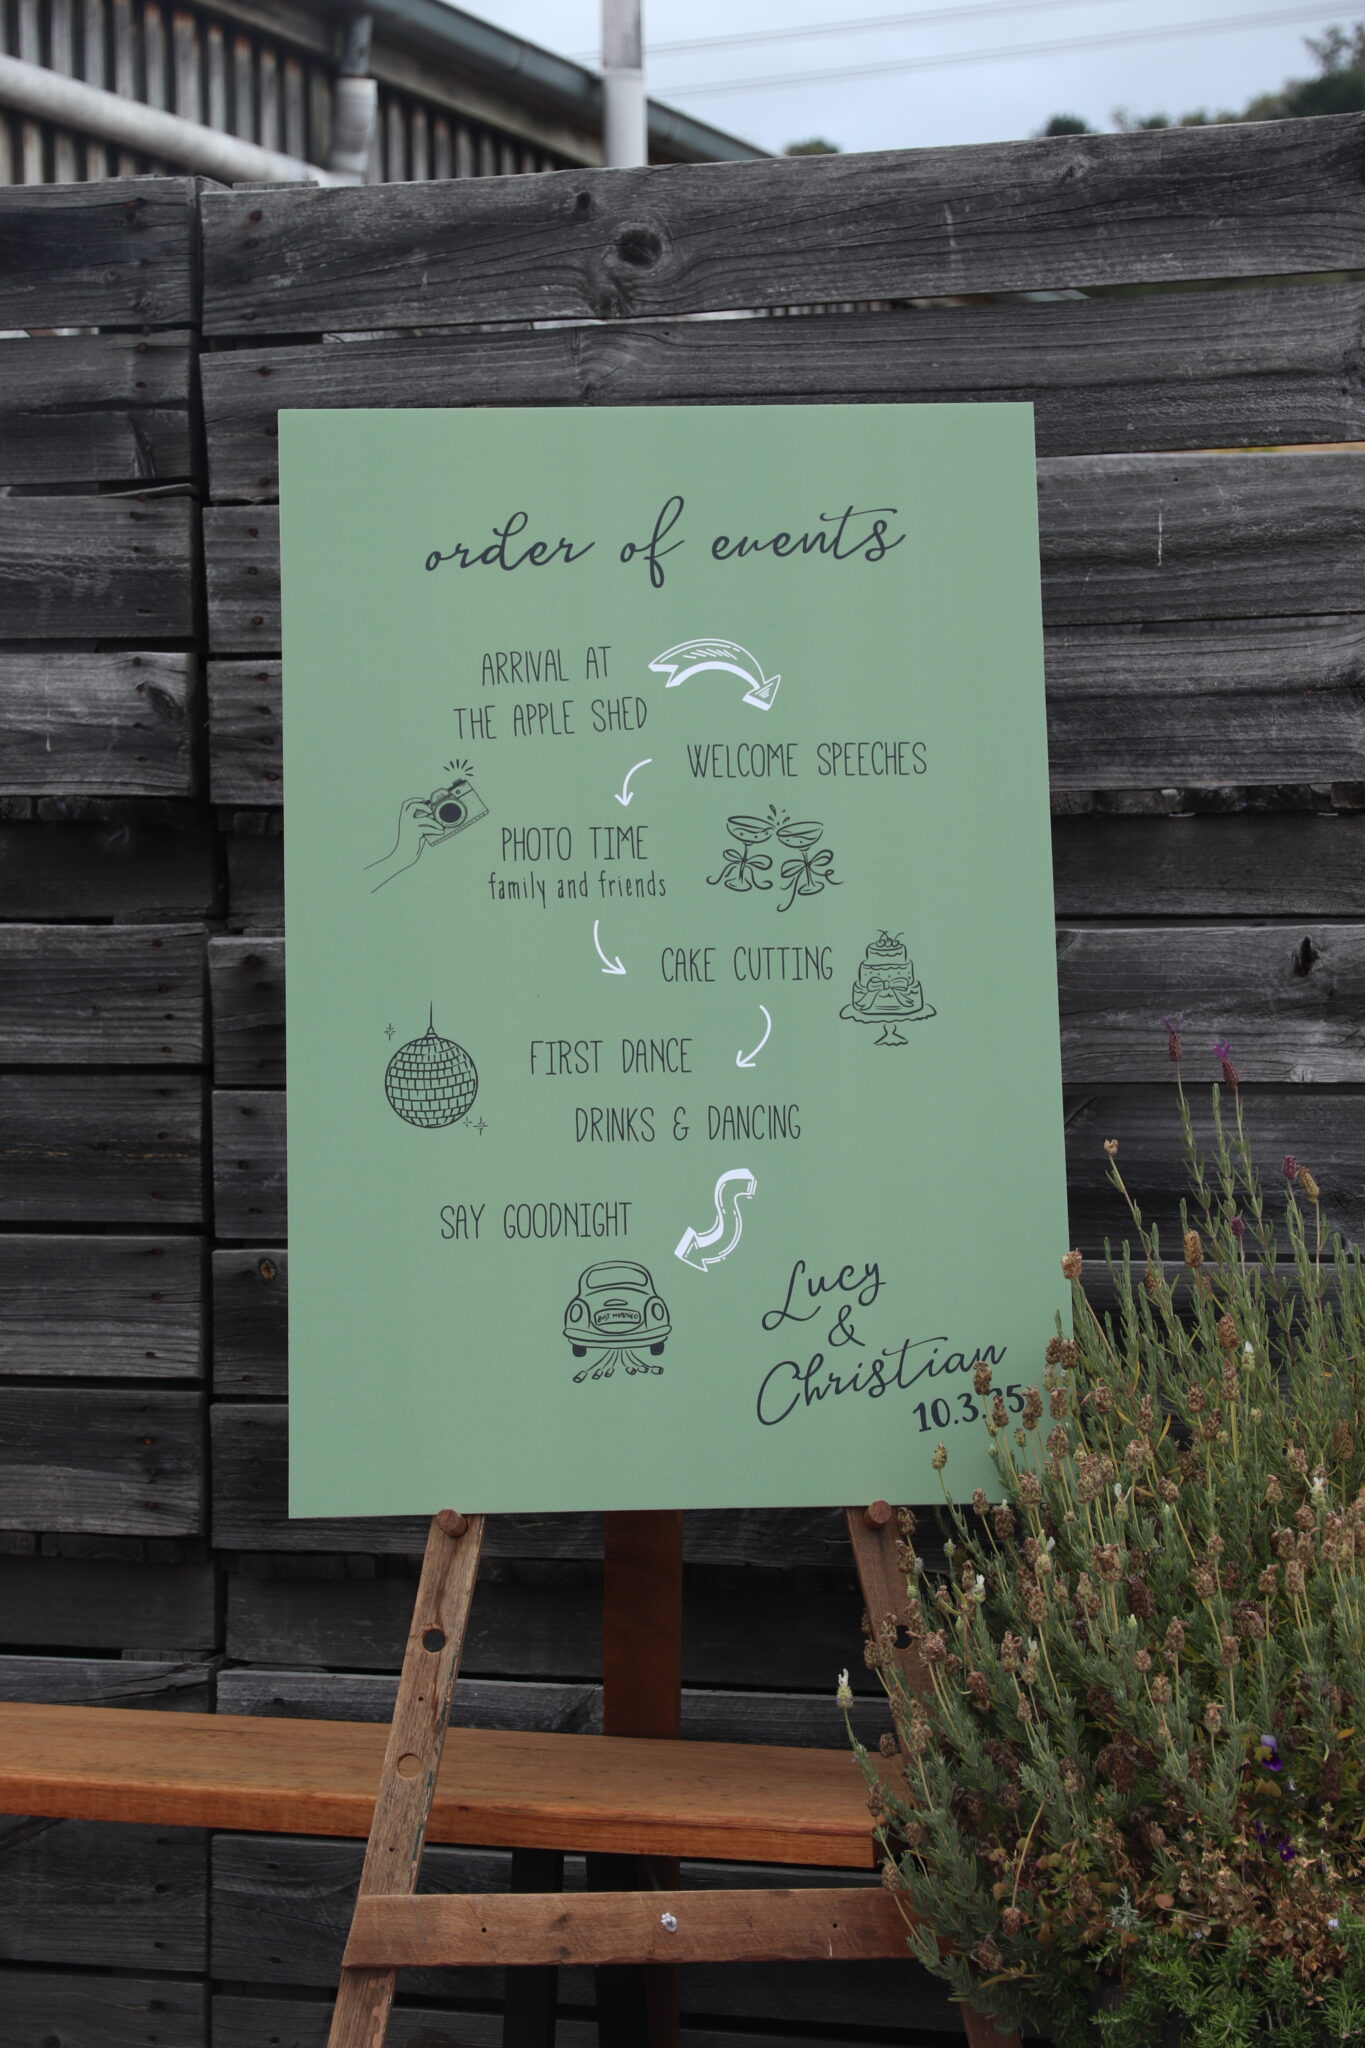 order of events
ARRIVAL AT
THE APPLE SHED
WELCOME SPEECHES
PHOTO TIME
family and friends
CAKE CUTTING
FIRST DANCE
DRINKS & DANCING
SAY GOODNIGHT
JUST MARRIED
Lucy
&
Christian